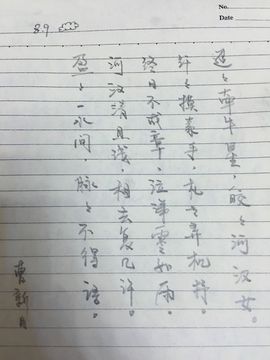 No.
Date
8.9
迢々牵牛星，皎々河汉女。
纤々摸素手，札々弄机杼。
终日不成章，泣涕零如雨。
河汉清且浅，相去复几许。
盈々一水间，脉々不得语。
曹新日